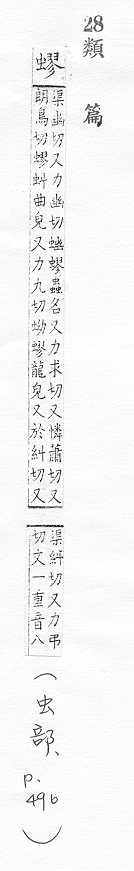 28類篇
蟉
渠幽切又力幽切蟉蟲名又力求切又憐蕭切又
朗鳥切蟉虯曲皃又力九切蚴蟉龍皃又於糾切又
渠糾切又力弔
切文一重音八
(虫部、p.496)